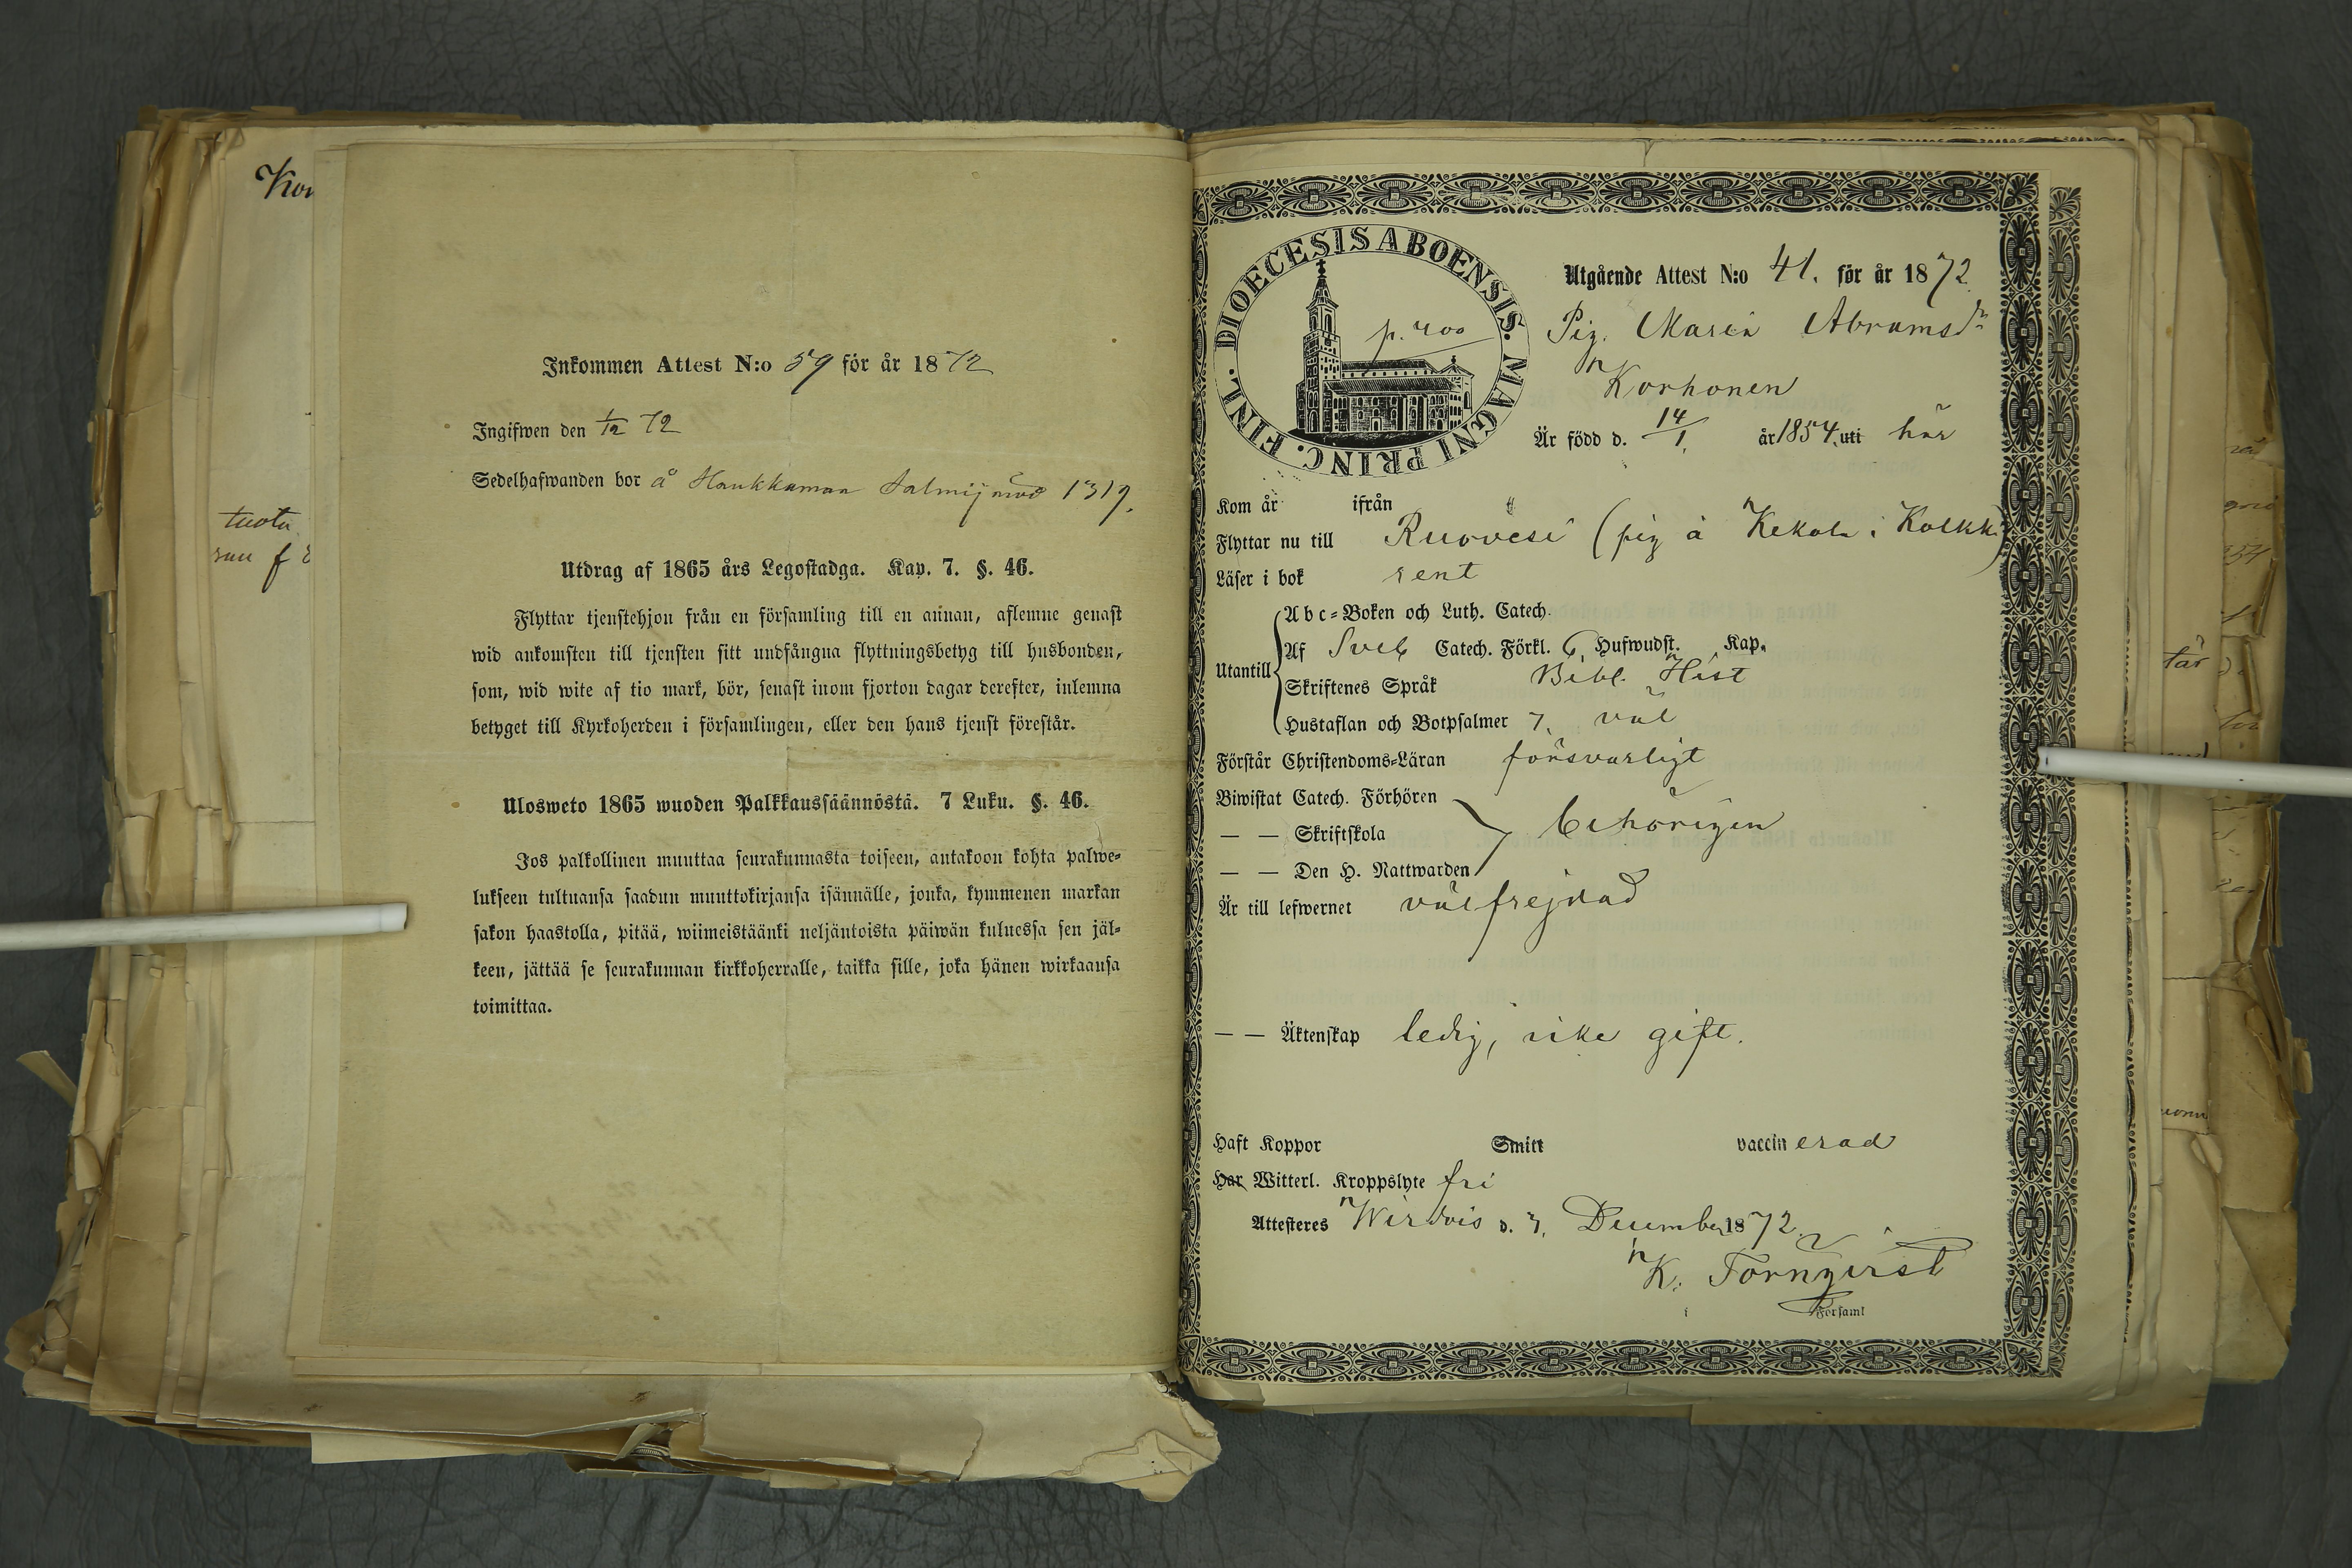 Kor
tuota
Inkommen Attest N:o 59 för år 1872
Ingifwen den 1/12 72
Sedelhafwanden bor å Haukkamaa 1319.
Utdrag af 1865 års Legostadga. Kap. 7. §. 46.
Flyttar tjenstehjon från en församling till en annan, aflemne genast
wid ankomsten till tjensten sitt undfångna flyttningsbetyg till husbonden,
som, wid wite af tio mark, bör, senast inom fjorton dagar derefter, inlemna
betyget till Kyrkoherden i församlingen, eller den hans tjenst förestår.
Ulosweto 1865 wuoden Palkkaussäännöstä. 7 Luku. §. 46.
Jos palkollinen muuttaa seurakunnasta toiseen, antakoon kohta palwe-
lukseen tultuansa saadun muuttokirjansa isännälle, jonka, kymmenen markan
sakon haastolla, pitää, wiimeistäänki neljäntoista päiwän kuluessa sen jäl-
keen, jättää se seurakunnan kirkkoherralle, taikka sille, joka hänen wirkaansa
toimittaa.
DIOECESIS ABOENSIS. MAGNI PRINC. FINL.
p. 400
Utgående Attest N:o 41. för år 1872
Pig. Maria Abramsdr
Korhonen
Är född d. 14/1. år 1854. uti här
Kom år ifrån
Flyttar nu till Ruovesi (pig å Kekola i Kolkki)
Läser i bok rent
Abc-Boken och Luth. Catech.
Utantill
Af Sveb Catech. Förkl. 6 Hufwudst. Kap.
Skriftenes Språk Bibl. Hist
Hustaflan och Botpsalmer 7. väl
Förstår Christendoms-Läran försvarligt
Biwistat Catech. Förhören
— — Skriftskola behörigen
— — Den H. Nattwarden
Är till lefwernet välfrejdad
— — Äktenskap ledig, icke gift.
Haft Koppor Smitt vaccinerad
Har Witterl. Kroppslyte fri
Attesteres Wirdois d. 7. December 1872.
K. Törnqvist
i Församl